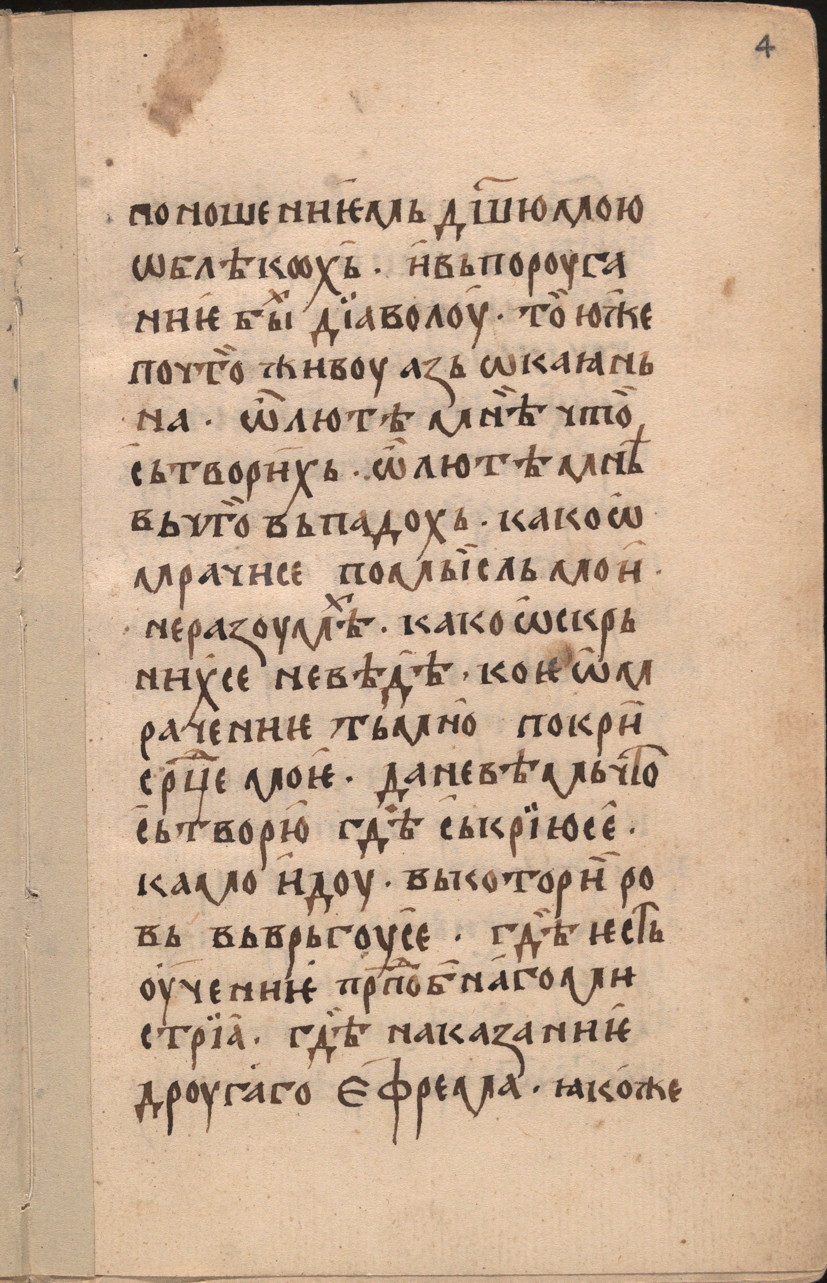 4
поношениѥмь дш҃ю мою
ѡблѣкѡхь. и вь пороуга
ниѥ бых дїаволоу. то юже
почто живоу азь ѡкаꙗнь
на. ѡ лютѣ мнѣ что
сьтворихь. ѡ лютѣ мнѣ
вь что въпадохь. како ѡ
мрачисе помысль мои.
не разоумѣх. како ѡскрь
нихсе не вѣдѣ. коѥ ѡм
рачениѥ тьмно покри
срⷣце моѥ. да не вѣмь что
сьтворю гдѣ сыкрїюсе.
камо идоу. вь которы ро
вь вьврьгоусе. гдѣ ѥсть
оучениѥ прпⷣобнаго мни
стрїа. гдѣ наказаниѥ
дроугаго Ефрема. ꙗкоже